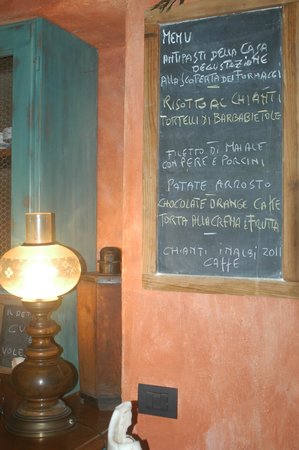 MENU
ANTIPASTI DELLA CASA
DEGUSTAZIONE
ALLA SCOPERTA DEI FORMAGGI
RISOTTO AL CHIANTI
TORTELLI DI BARBABIETOLE
FILETTO DI MAIALE
CON PERE E PORCINI
PATATE ARROSTO
CHOCOLATE ORANGE CAKE
TORTA ALLA CREMA E FRUTTA
CHIANTI 2011
CAFFE
IL DET
VOLE